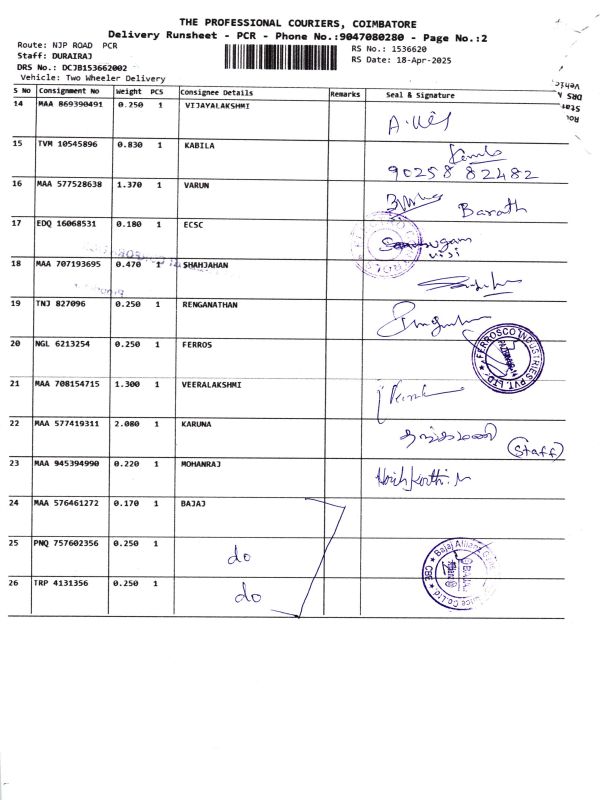 THE PROFESSIONAL COURIERS, COIMBATORE
Delivery Runsheet - PCR - Phone No.:9047080280 - Page No.:2
Route: NJP ROAD PCR
RS No.: 1536620
Staff: DURAIRAJ
RS Date: 18-Apr-2025
DRS No.: DCJB153662002
Vehicle: Two Wheeler Delivery
S No Consignment No Weight PCS Consignee Details Remarks Seal & Signature
14 MAA 869390491 0.250 1 VIJAYALAKSHMI
15 TVM 10545896 0.830 1 KABILA
90258 82482
16 MAA 577528638 1.370 1 VARUN Barath
17 EDQ 16068531 0.180 1 ECSC
18 MAA 707193695 0.470 1 SHAHJAHAN
19 TNJ 827096 0.250 1 RENGANATHAN
20 NGL 6213254 0.250 1 FERROS
FERROSCO INDUSTRIES PVT. LTD.
21 MAA 708154715 1.300 1 VEERALAKSHMI
22 MAA 577419311 2.080 1 KARUNA
(Staff)
23 MAA 945394990 0.220 1 MOHANRAJ
24 MAA 576461272 0.170 1 BAJAJ
25 PNQ 757602356 0.250 1 do
Bajaj Allianz
CBE
26 TRP 4131356 0.250 1 do